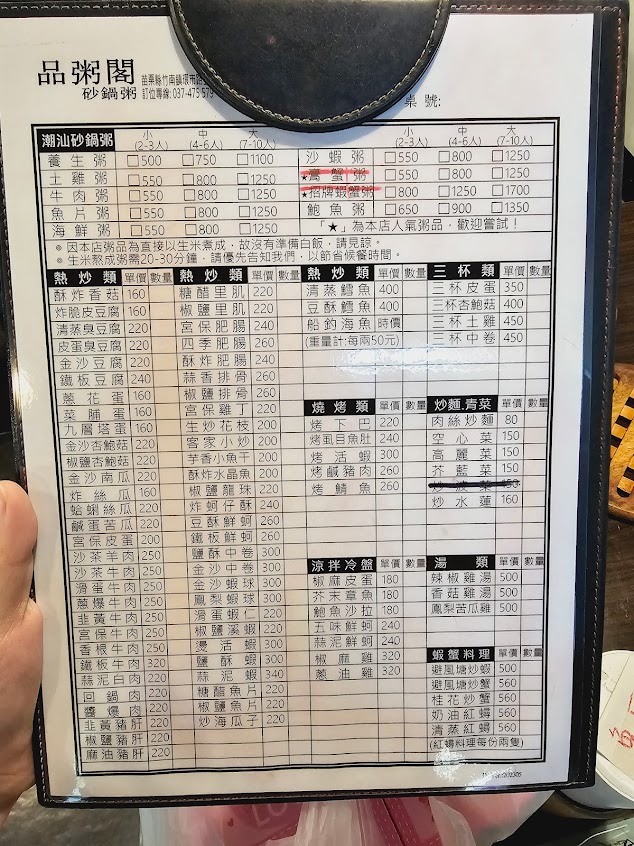 品粥閣
砂鍋粥
苗栗縣竹南鎮環市路
訂位專線:037-475 579
桌 號:
潮汕砂鍋粥 小(2-3人) 中(4-6人) 大(7-10人) 小(2-3人) 中(4-6人) 大(7-10人)
養生粥 □500 □750 □1100 沙蝦粥 □550 □800 □1250
土雞粥 □550 □800 □1250 ★膏蟹粥 □550 □800 □1250
牛肉粥 □550 □800 □1250 ★招牌蝦蟹粥 □800 □1250 □1700
魚片粥 □550 □800 □1250 鮑魚粥 □650 □900 □1350
海鮮粥 □550 □800 □1250 「★」為本店人氣粥品,歡迎嘗試!
◎因本店粥品為直接以生米煮成,故沒有準備白飯,請見諒。
◎生米熬成粥需20-30分鐘,請優先告知我們,以節省候餐時間。
熱炒類 單價 數量
酥炸香菇 160
炸脆皮豆腐 160
清蒸臭豆腐 220
皮蛋臭豆腐 220
金沙豆腐 220
鐵板豆腐 240
蔥花蛋 160
菜脯蛋 160
九層塔蛋 160
金沙杏鮑菇 220
椒鹽杏鮑菇 220
金沙南瓜 220
炸絲瓜 160
蛤蜊絲瓜 220
鹹蛋苦瓜 220
宮保皮蛋 200
沙茶羊肉 250
沙茶牛肉 250
滑蛋牛肉 250
蔥爆牛肉 250
韭黃牛肉 250
宮保牛肉 250
香根牛肉 250
鐵板牛肉 320
蒜泥白肉 220
回鍋肉 220
醬爆肉 220
韭黃豬肝 220
椒鹽豬肝 220
麻油豬肝 220
熱炒類 單價 數量
糖醋里肌 220
椒鹽里肌 220
宮保肥腸 240
四季肥腸 260
酥炸肥腸 240
蒜香排骨 260
椒鹽排骨 260
宮保雞丁 220
生炒花枝 200
客家小炒 200
芋香小魚干 200
酥炸水晶魚 200
椒鹽龍珠 220
炸蚵仔酥 240
豆酥鮮蚵 260
鐵板鮮蚵 260
鹽酥中卷 300
金沙中卷 300
金沙蝦球 300
鳳梨蝦球 300
滑蛋蝦仁 220
椒鹽溪蝦 220
燙活蝦 300
鹽酥蝦 300
蒜泥蝦 340
糖醋魚片 220
椒鹽魚片 220
炒海瓜子 220
熱炒類 單價 數量
清蒸鱈魚 400
豆酥鱈魚 400
船釣海魚 時價
(重量計:每兩50元)
燒烤類 單價 數量
烤下巴 220
烤虱目魚肚 240
烤活蝦 300
烤鹹豬肉 260
烤鯖魚 260
涼拌冷盤 單價 數量
椒麻皮蛋 180
芥末章魚 180
鮑魚沙拉 180
五味鮮蚵 240
蒜泥鮮蚵 240
椒麻雞 320
蔥油雞 320
三杯類 單價 數量
三杯皮蛋 350
三杯杏鮑菇 400
三杯土雞 450
三杯中卷 450
炒麵.青菜 單價 數量
肉絲炒麵 80
空心菜 150
高麗菜 150
芥藍菜 150
炒波菜 150
炒水蓮 160
湯類 單價 數量
辣椒雞湯 500
香菇雞湯 500
鳳梨苦瓜雞 500
蝦蟹料理 單價 數量
避風塘炒蝦 500
避風塘炒蟹 560
桂花炒蟹 560
奶油紅蟳 560
清蒸紅蟳 560
(紅蟳料理每份兩隻)